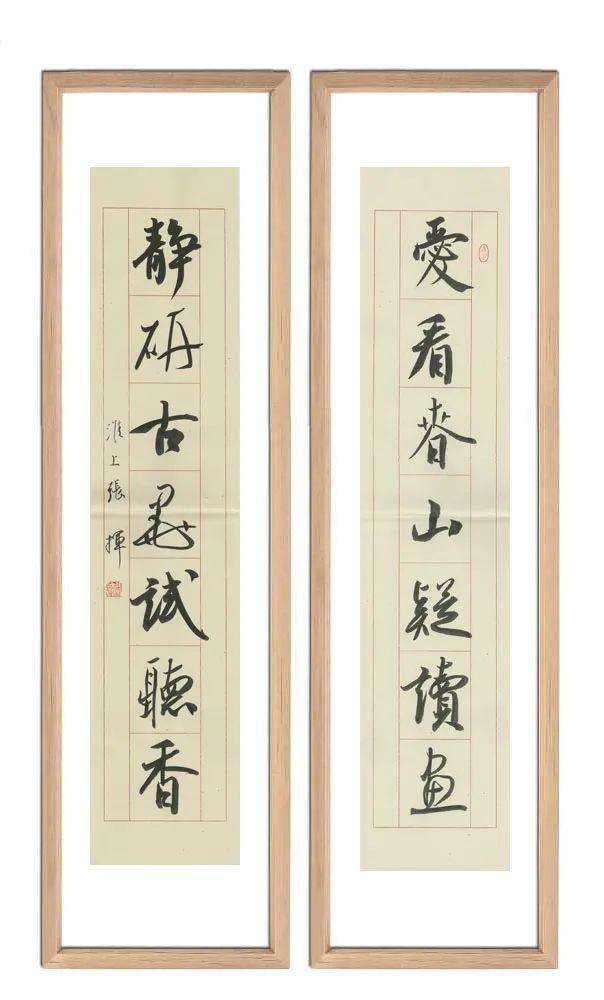 愛看春山疑讀畫
静研古墨試聽香
淮上張揮